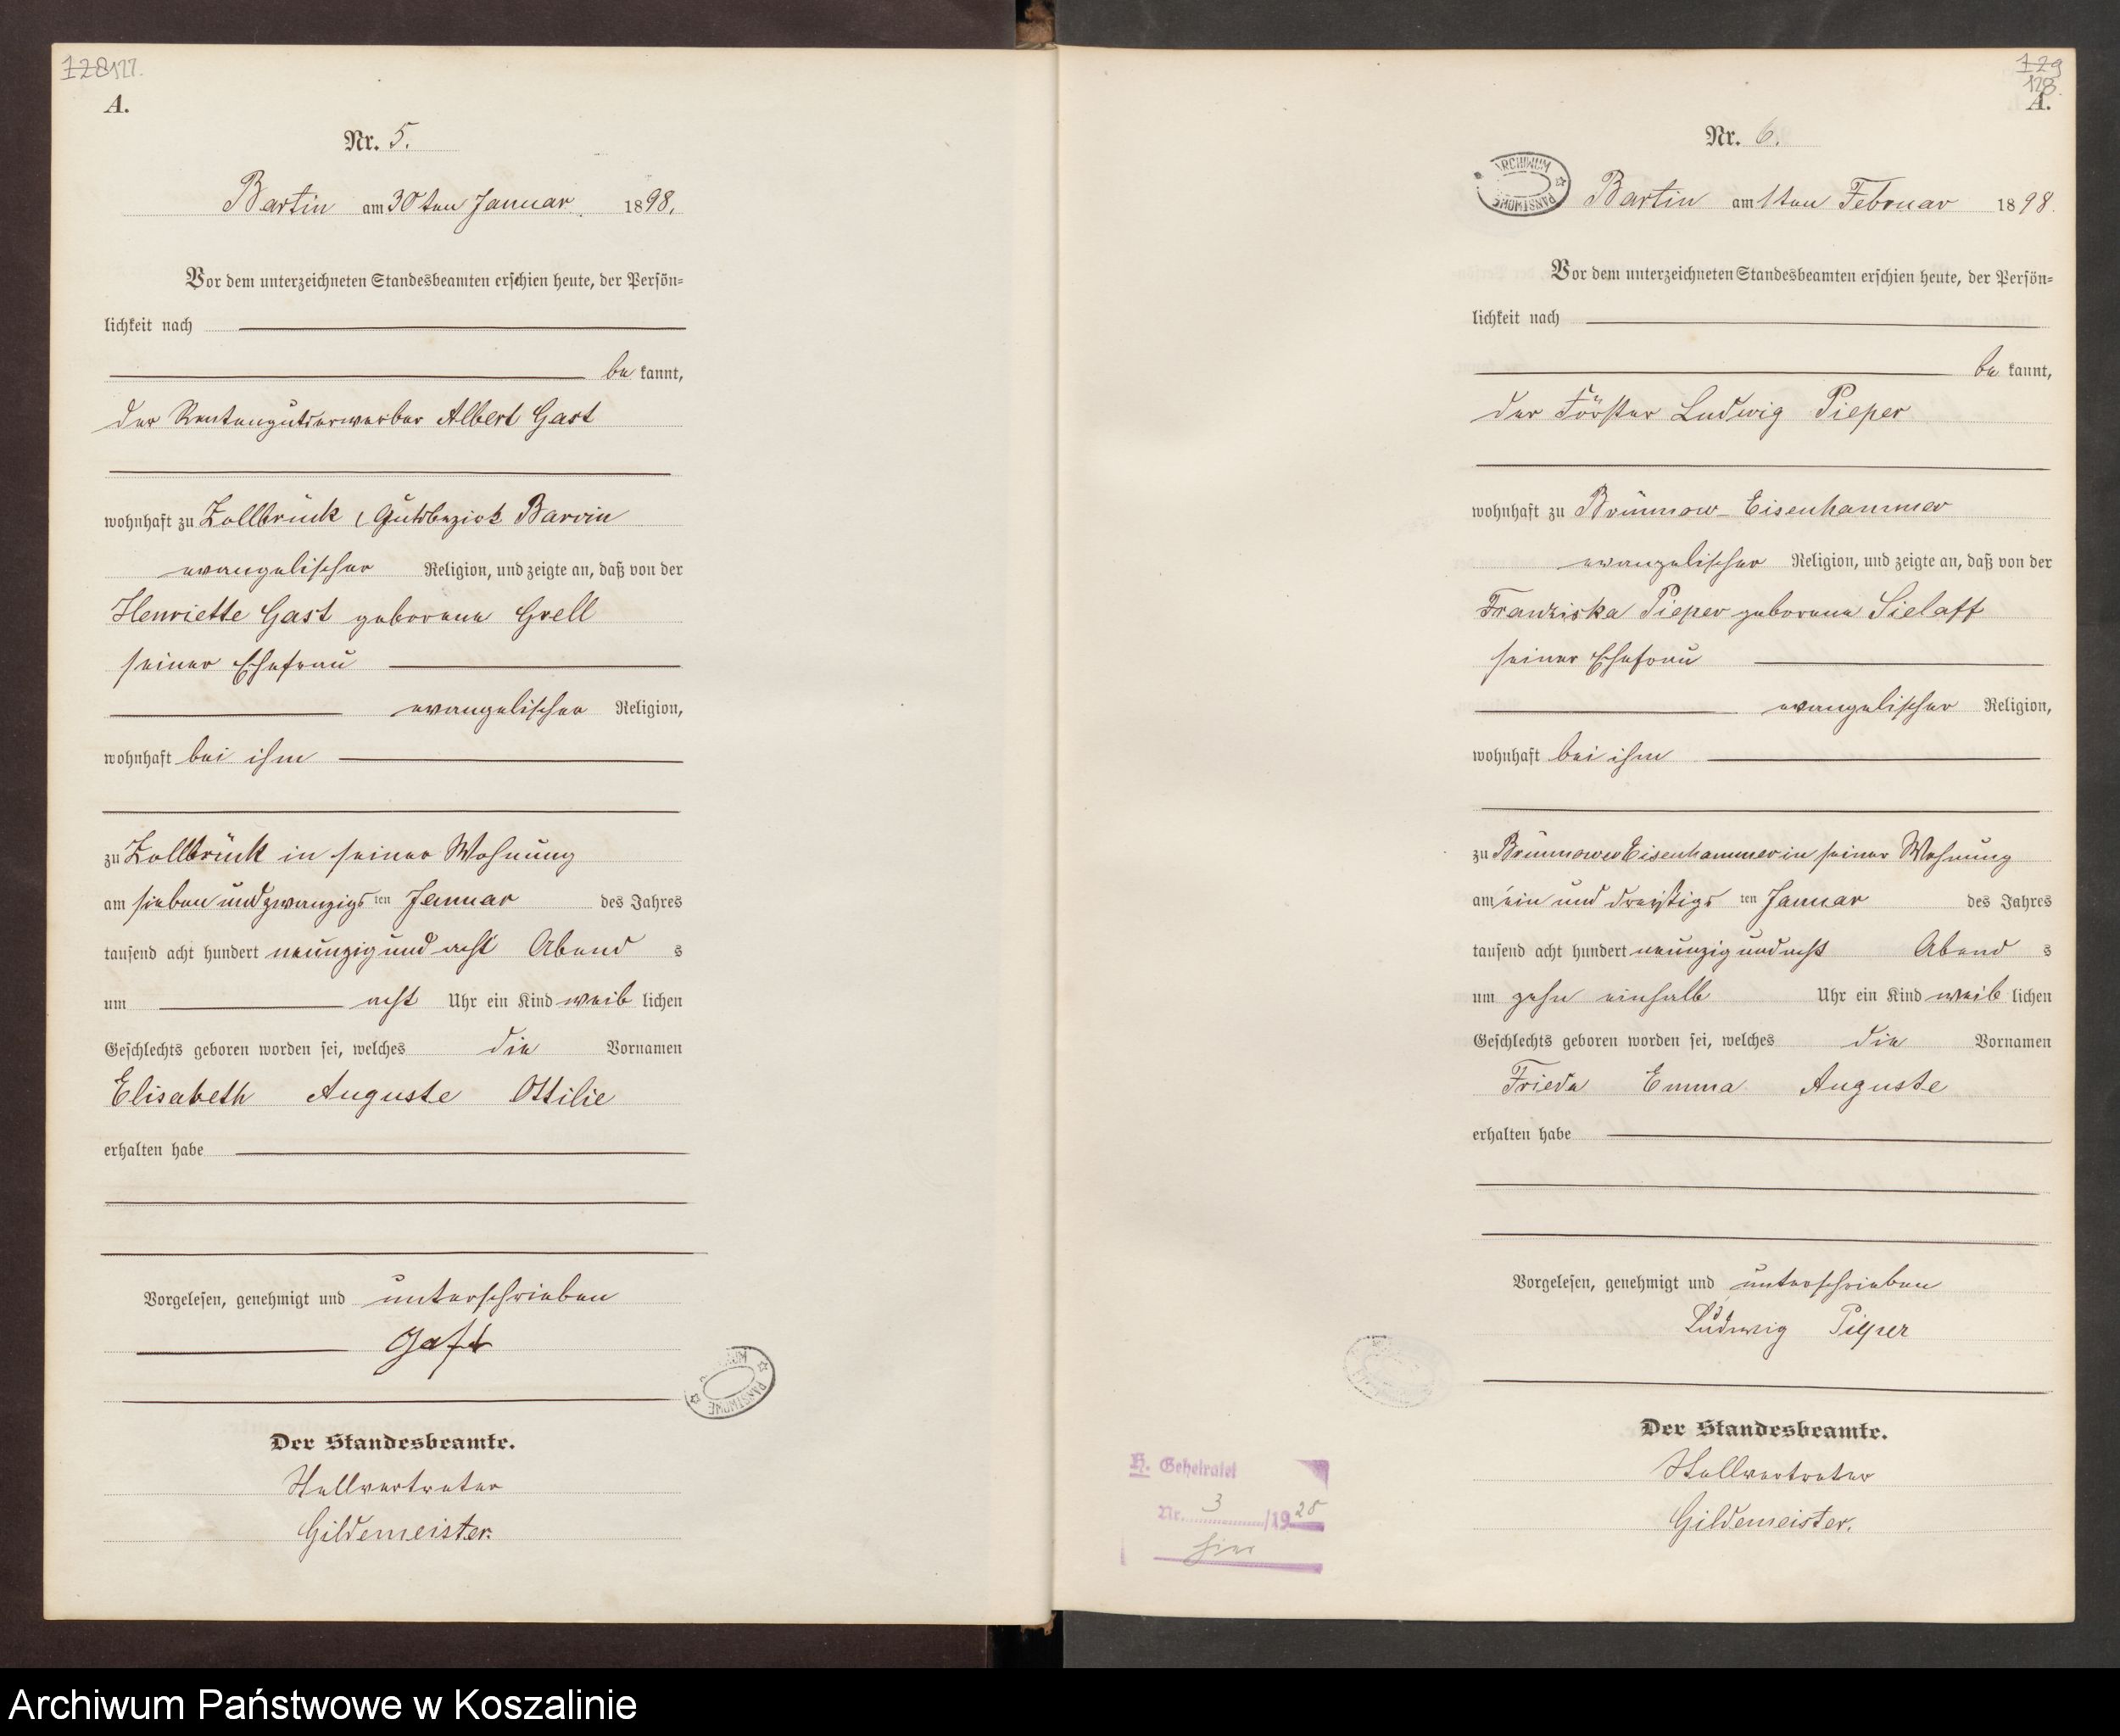 128 127.
A.
Nr. 5.
Bartin am 30ten Januar 1898.
Vor dem unterzeichneten Standesbeamten erschien heute, der Persön-
lichkeit nach
be kannt,
der Rentengutserwerber Albert Gast
wohnhaft zu Zollbrück, Gutsbezirk Barvin
evangelischer Religion, und zeigte an, daß von der
Henriette Gast geborene Grell
seiner Ehefrau
evangelischer Religion,
wohnhaft bei ihm
zu Zollbrück in seiner Wohnung
am sieben und zwanzigs ten Januar des Jahres
tausend acht hundert neunzig und acht Abend s
um acht Uhr ein Kind weib lichen
Geschlechts geboren worden sei, welches die Vornamen
Elisabeth Auguste Ottilie
erhalten habe
Vorgelesen, genehmigt und unterschrieben
Gast
PAŃSTWOWE
Der Standesbeamte.
Stellvertreter
Gildemeister.
129
128.
A.
Nr. 6.
ARCHIWUM PAŃSTWOWE
Bartin am 1ten Februar 1898.
Vor dem unterzeichneten Standesbeamten erschien heute, der Persön-
lichkeit nach
be kannt,
der Förster Ludwig Pieper
wohnhaft zu Brünnow-Eisenhammer
evangelischer Religion, und zeigte an, daß von der
Franziska Pieper geborene Sielaff
seiner Ehefrau
evangelischer Religion,
wohnhaft bei ihm
zu Brünnower Eisenhammer in seiner Wohnung
am ein und dreißigs ten Januar des Jahres
tausend acht hundert neunzig und acht Abend s
um zehn einhalb Uhr ein Kind weib lichen
Geschlechts geboren worden sei, welches die Vornamen
Frieda Emma Auguste
erhalten habe
Vorgelesen, genehmigt und unterschrieben
Ludwig Pieper
Der Standesbeamte.
Stellvertreter
Gildemeister.
H. Geheiratet
Nr. 3 /1925
hier
Archiwum Państwowe w Koszalinie